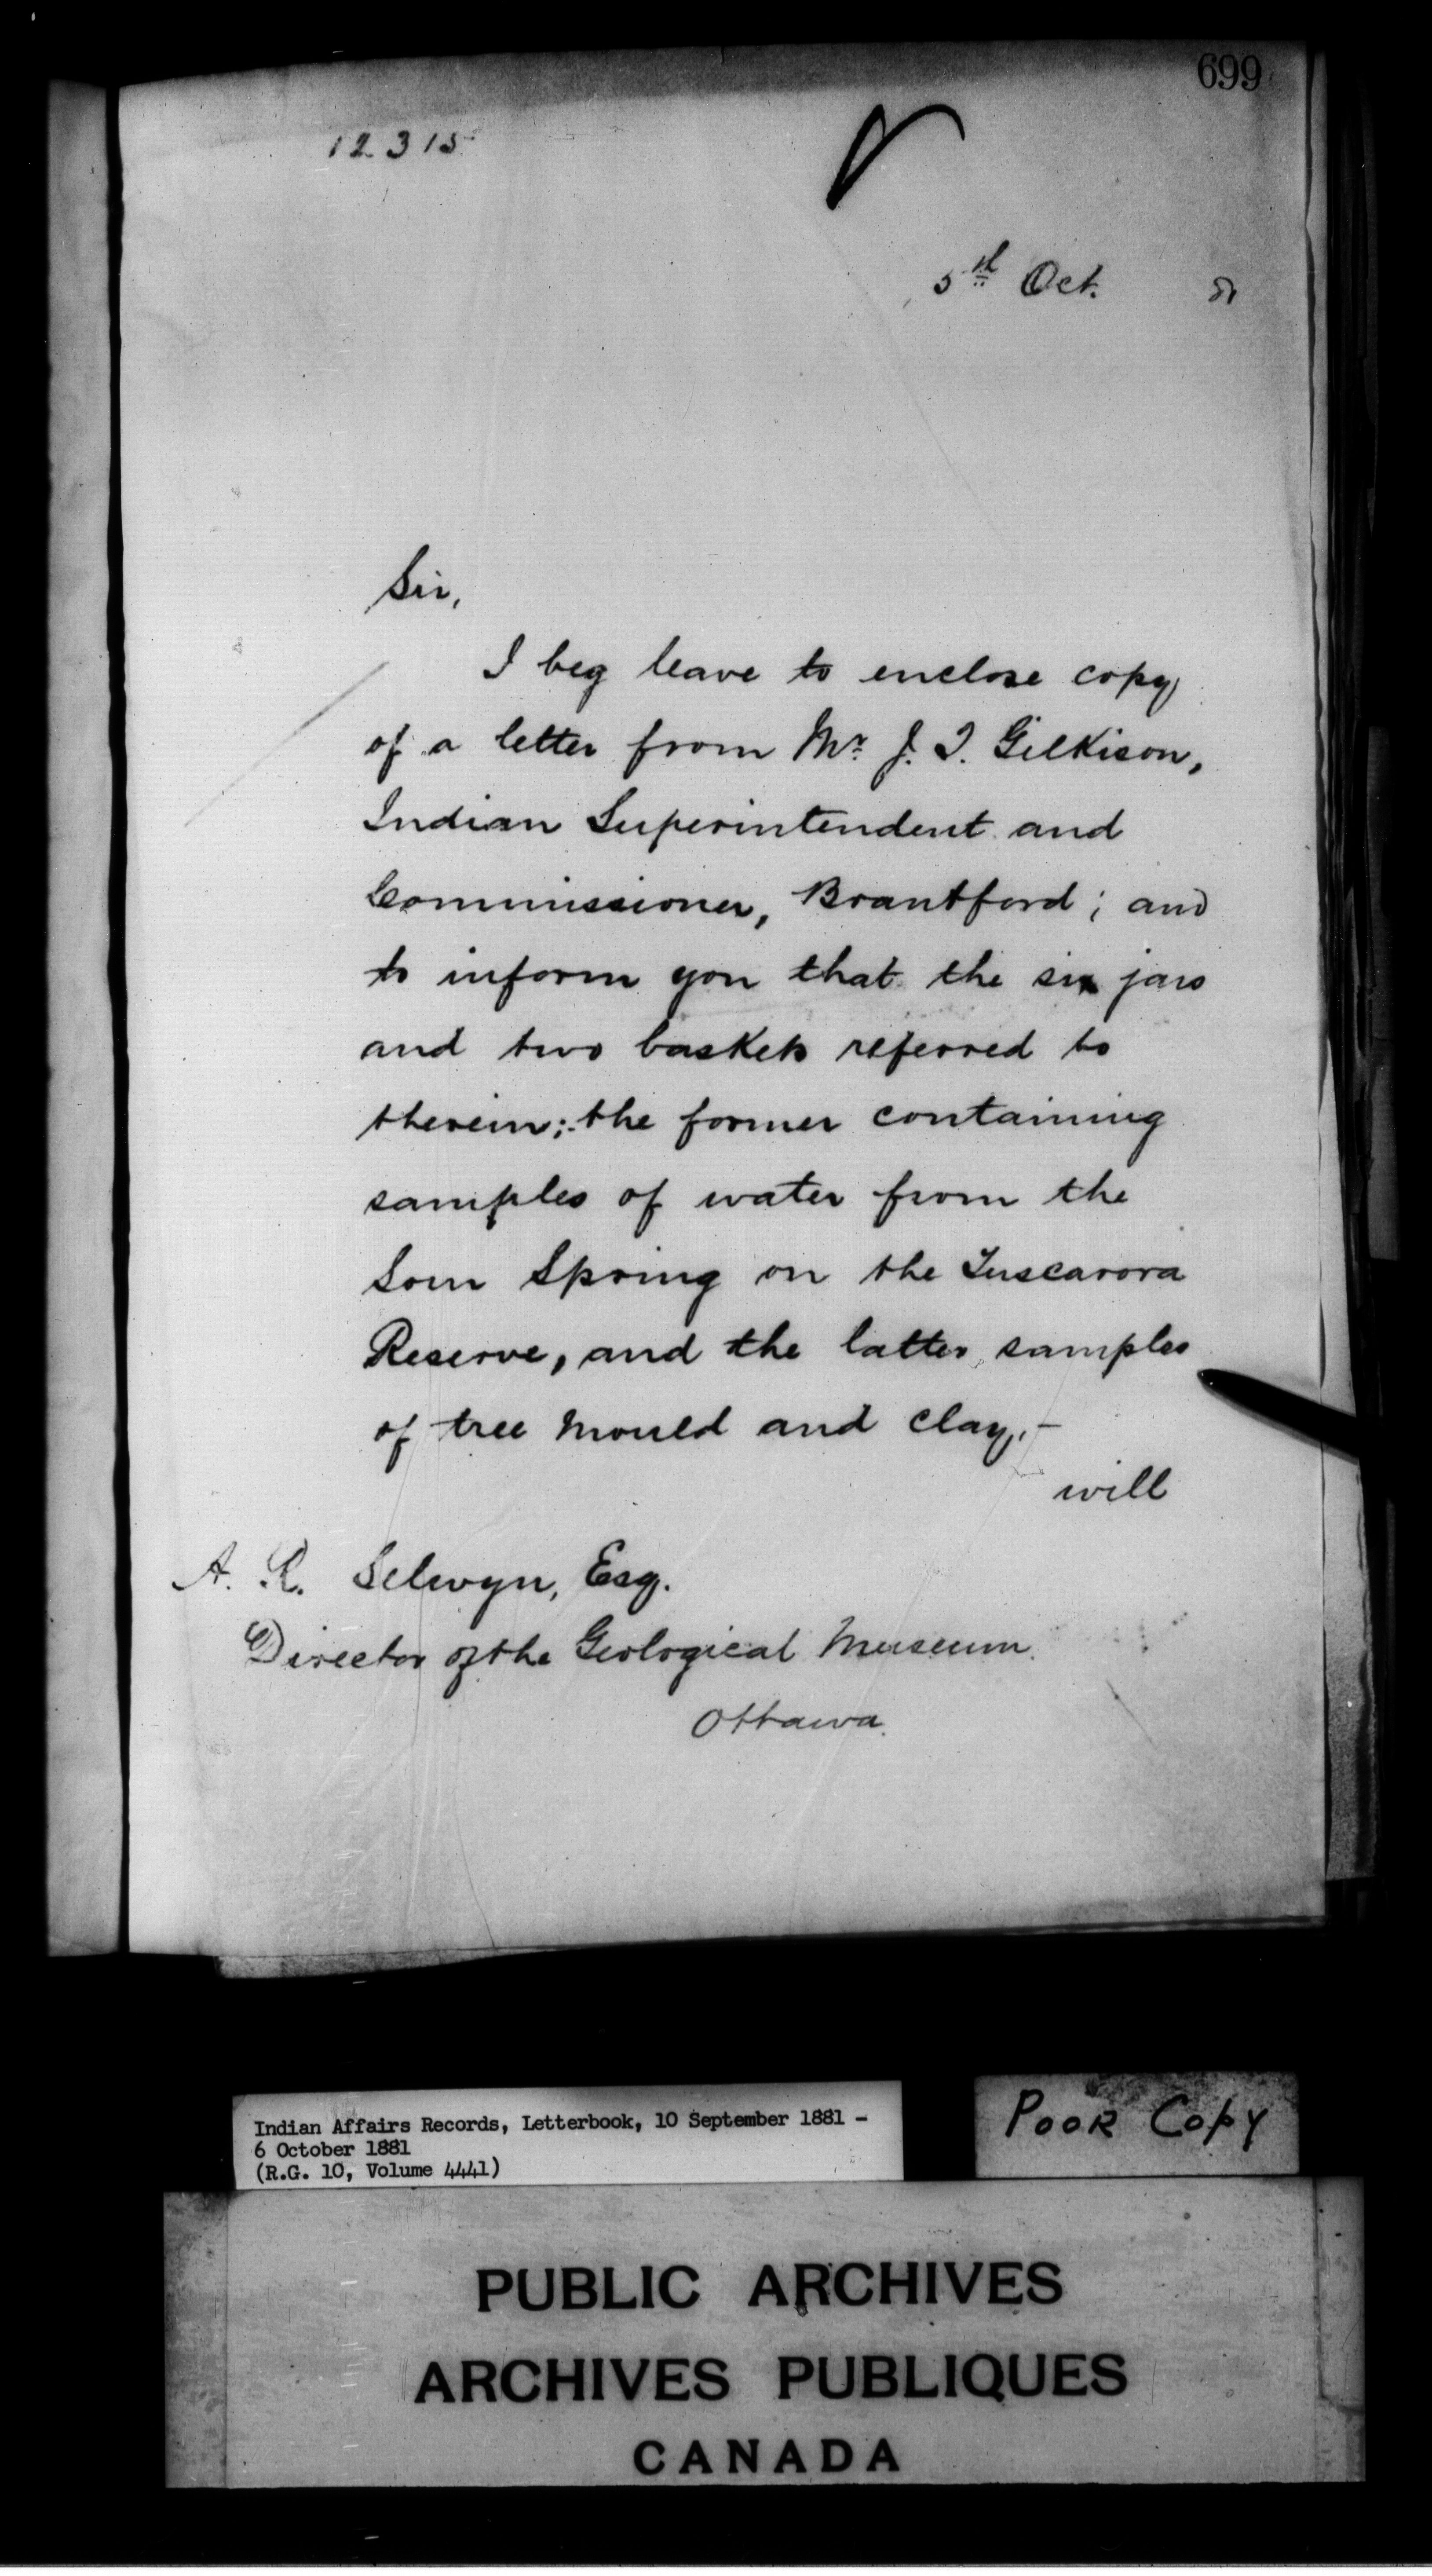 699
12315
5th Oct. 81
Sir,
I beg leave to enclose copy
of a letter from Mr. J. T. Gilkison,
Indian Superintendent and
Commissioner, Brantford; and
to inform you that the six jars
and two baskets referred to
therein; the former containing
samples of water from the
Sour Spring on the Tuscarora
Reserve, and the latter, samples
of tree mould and clay, -
will
A. R. Selwyn, Esq.
Director of the Geological Museum.
Ottawa.
Indian Affairs Records, Letterbook, 10 September 1881 -
6 October 1881
(R.G. 10, Volume 4441)
POOR COPY
PUBLIC ARCHIVES
ARCHIVES PUBLIQUES
CANADA